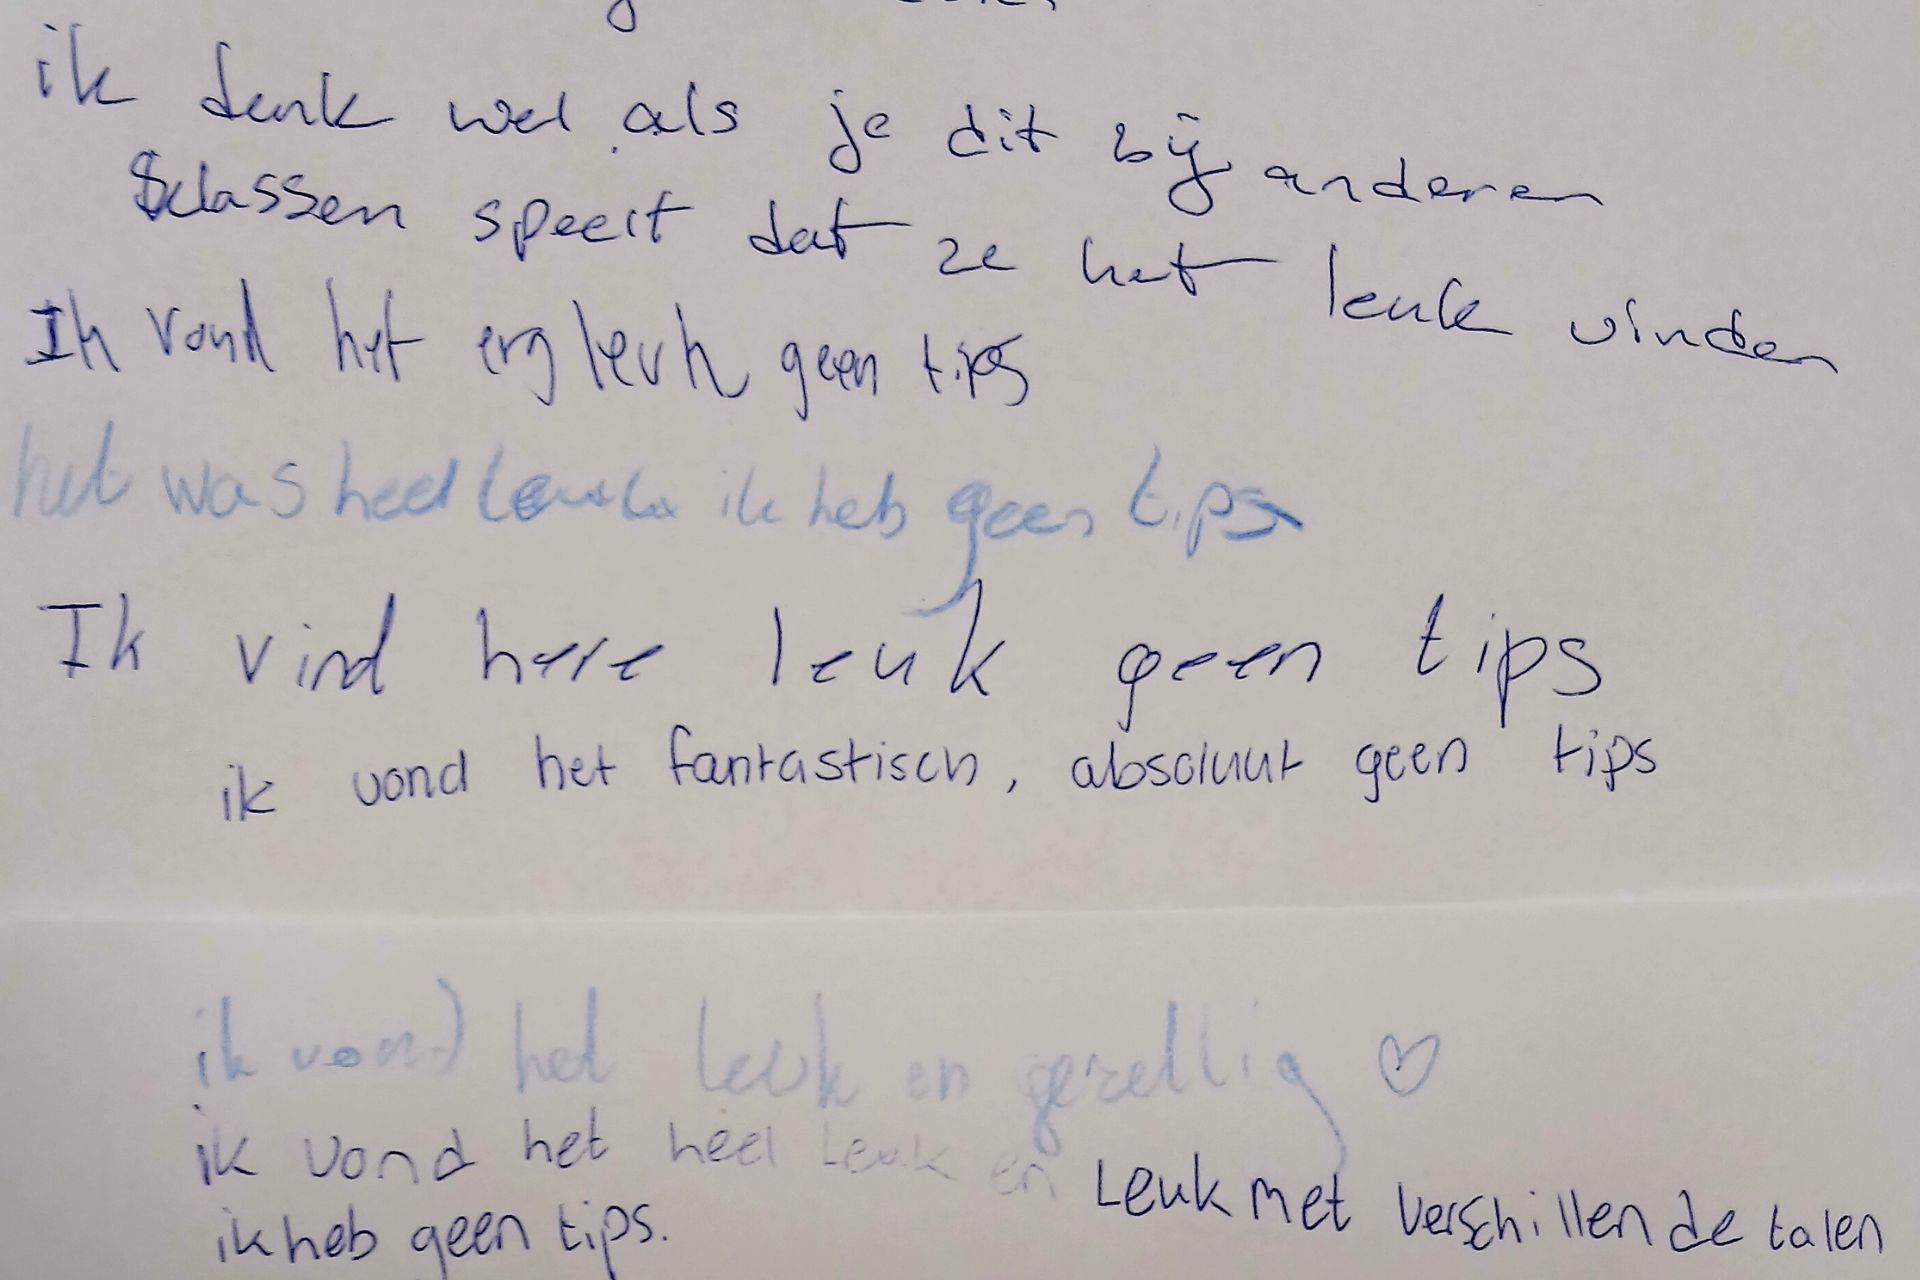 ik denk wel als je dit bij anderen
klassen speelt dat ze het leuk vinden
Ik vond het erg leuk geen tips
het was heel leuk ik heb geen tips
Ik vind leuk geen tips
ik vond het fantastisch, absoluut geen tips
ik vond het leuk en gezellig ♡
ik vond het heel leuk en leuk met verschillende talen
ik heb geen tips.